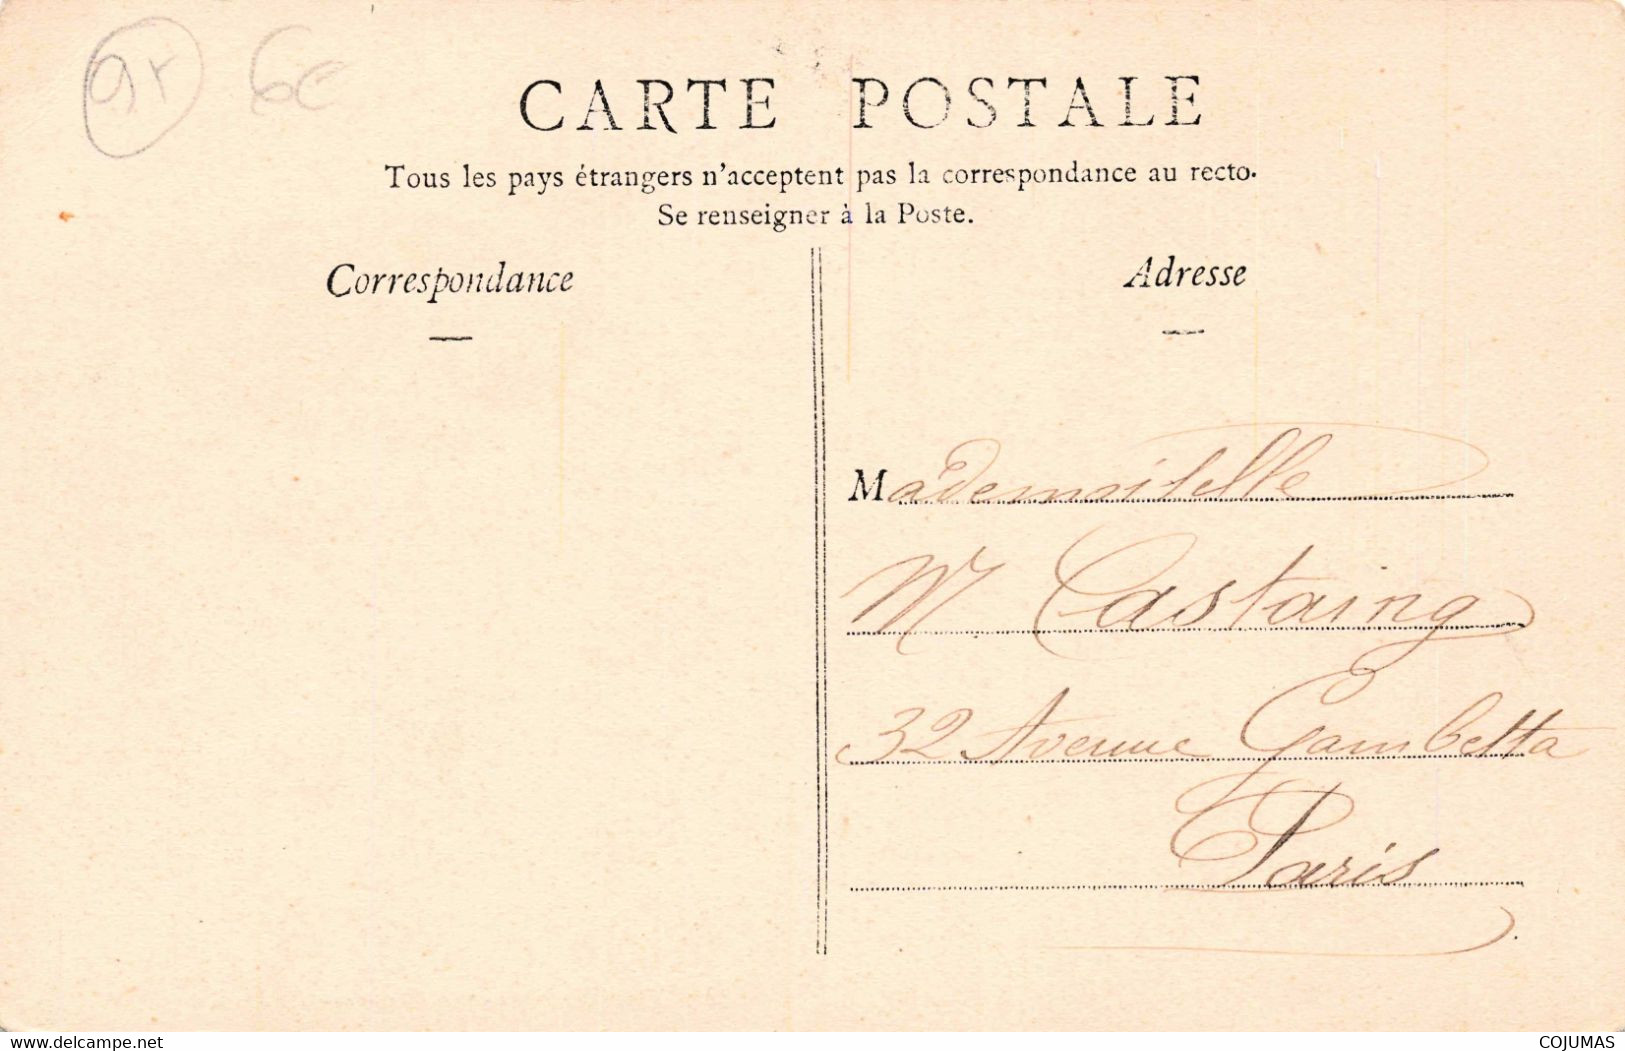 6€
CARTE POSTALE
Tous les pays étrangers n'acceptent pas la correspondance au recto.
Se renseigner à la Poste.
Correspondance
Adresse
Mademoiselle
M Castaing
32 Avenue Gambetta
Paris
www.delcampe.net
COJUMAS